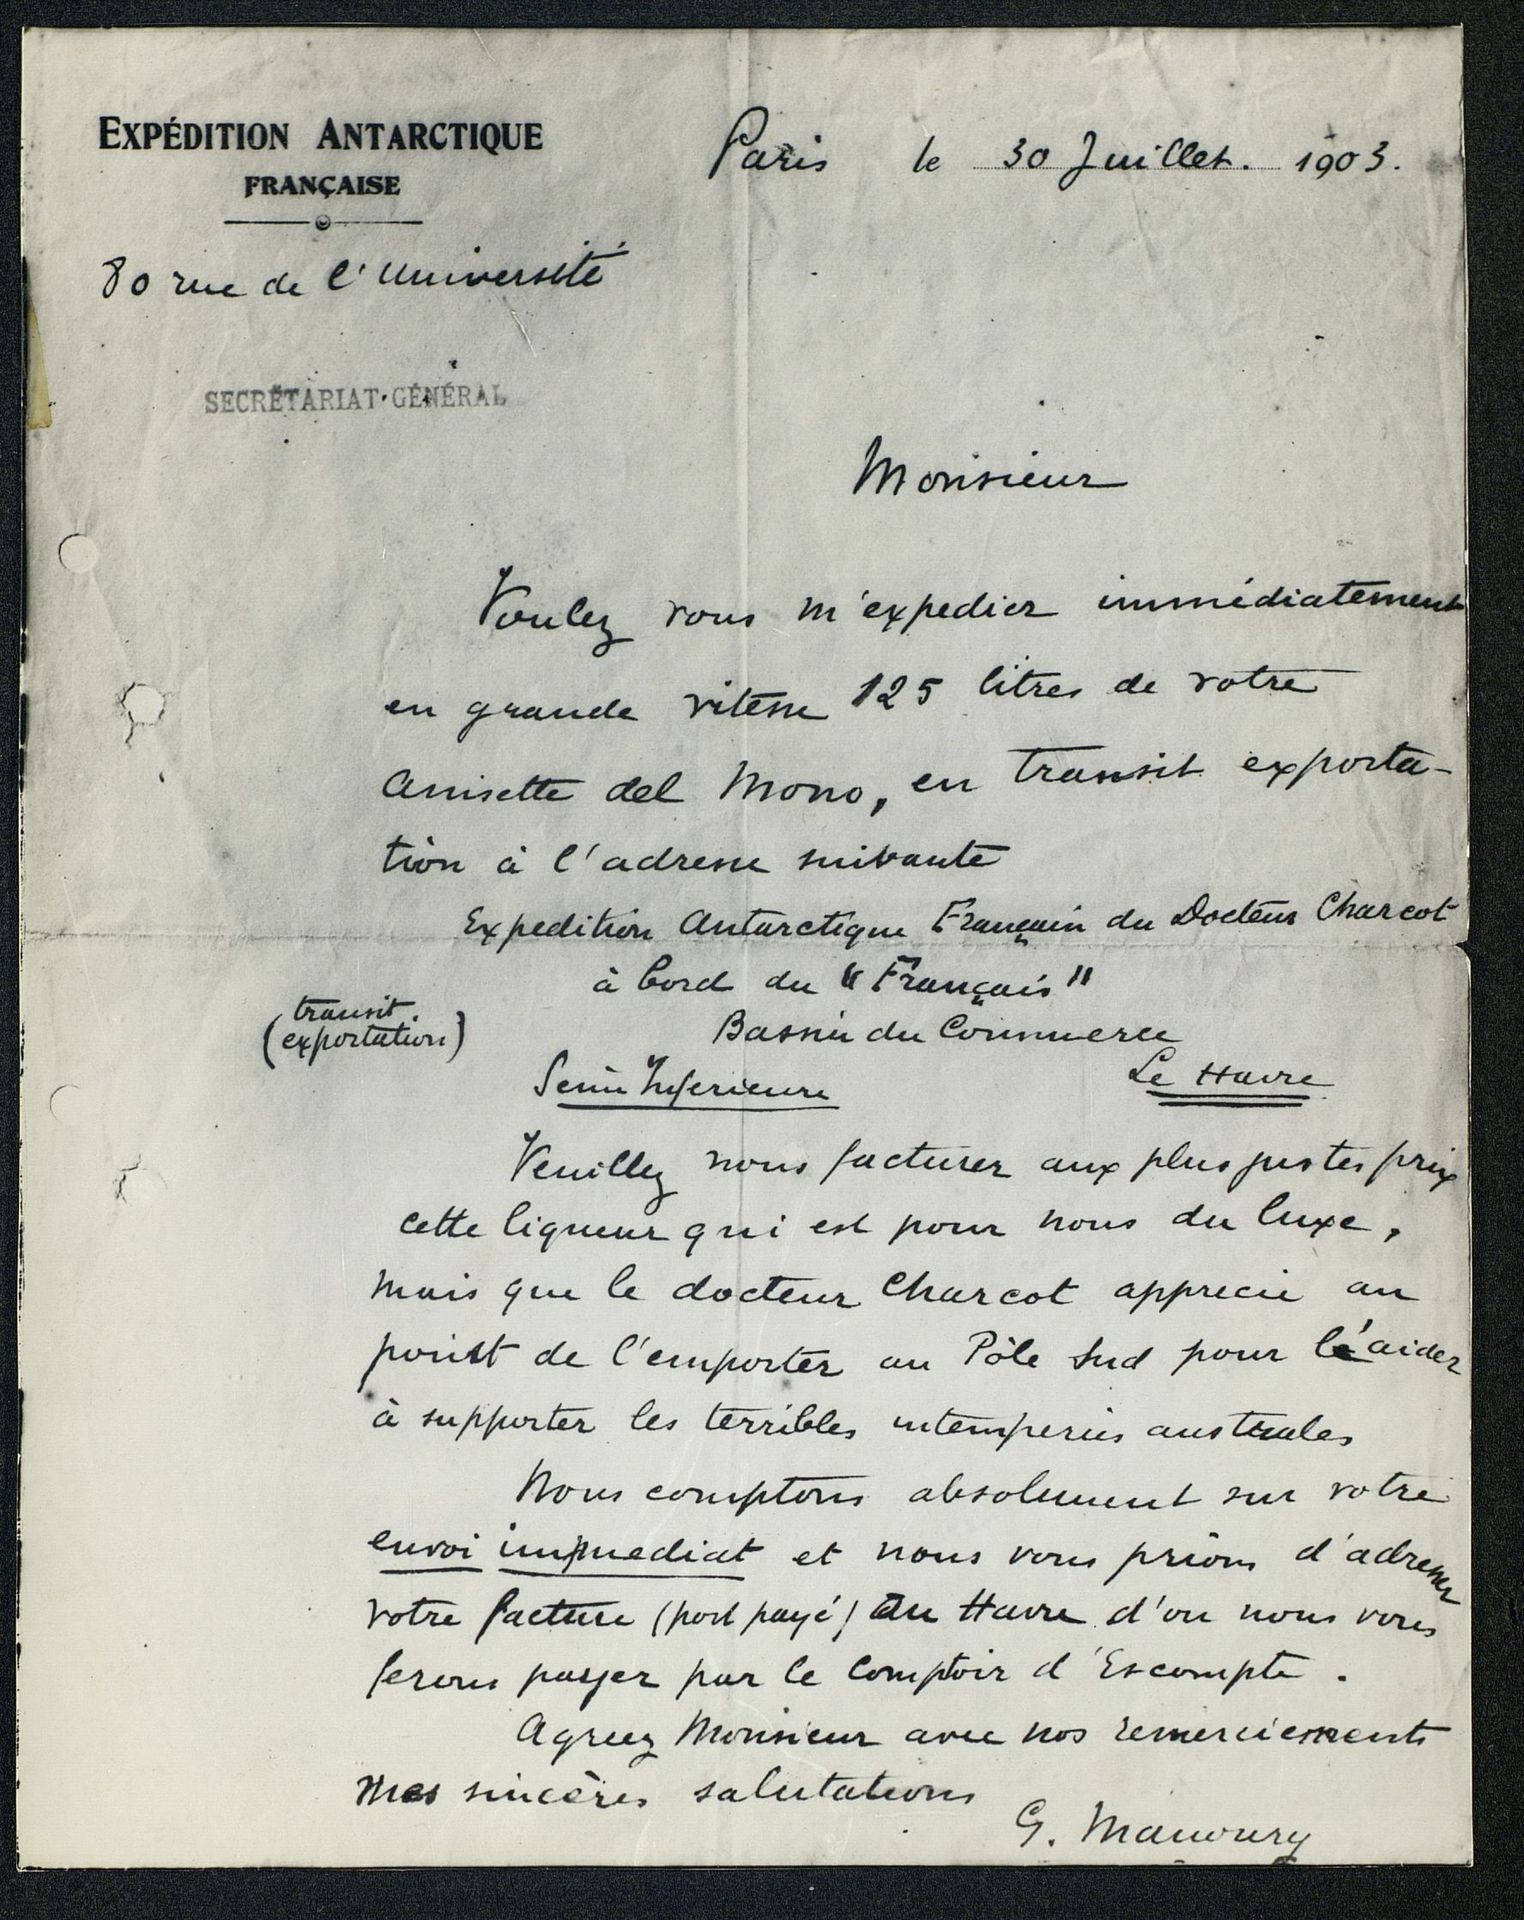 EXPÉDITION ANTARCTIQUE
FRANÇAISE
Paris le 30 Juillet. 1903.
80 rue de l'Université
SECRÉTARIAT GÉNÉRAL
Monsieur
Voulez vous m'expedier immédiatement
en grande vitesse 125 litres de votre
Anisette del Mono, en transit exporta-
tion à l'adresse suivante
Expedition Antarctique Français du Docteur Charcot
à bord du "Français"
(transit
exportation)
Bassin du Commerce
Le Havre
Seine Inferieure
Veuillez nous facturer aux plus justes prix
cette liqueur qui est pour nous du luxe,
mais que le docteur Charcot apprecie au
point de l'emporter au Pôle Sud pour l'aider
à supporter les terribles intemperies australes
Nous comptons absolument sur votre
envoi immediat et nous vous prions d'adresser
votre facture (port payé) au Havre d'ou nous vous
ferons payer par le Comptoir d'Escompte.
Agreez Monsieur avec nos remerciements
mes sincères salutations
G. Manoury